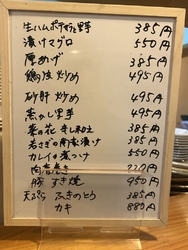 生ハムポテトサラダ 385円
漬けマグロ 550円
厚あげ 385円
鶏皮炒め 495円
砂肝炒め 495円
蒸し 385円
菜の花 辛し和え 385円
わかさぎの南蛮漬け 385円
カレイの煮つけ 550円
豚すき焼 950円
天ぷら ふきのとう 385円
カキ 885円